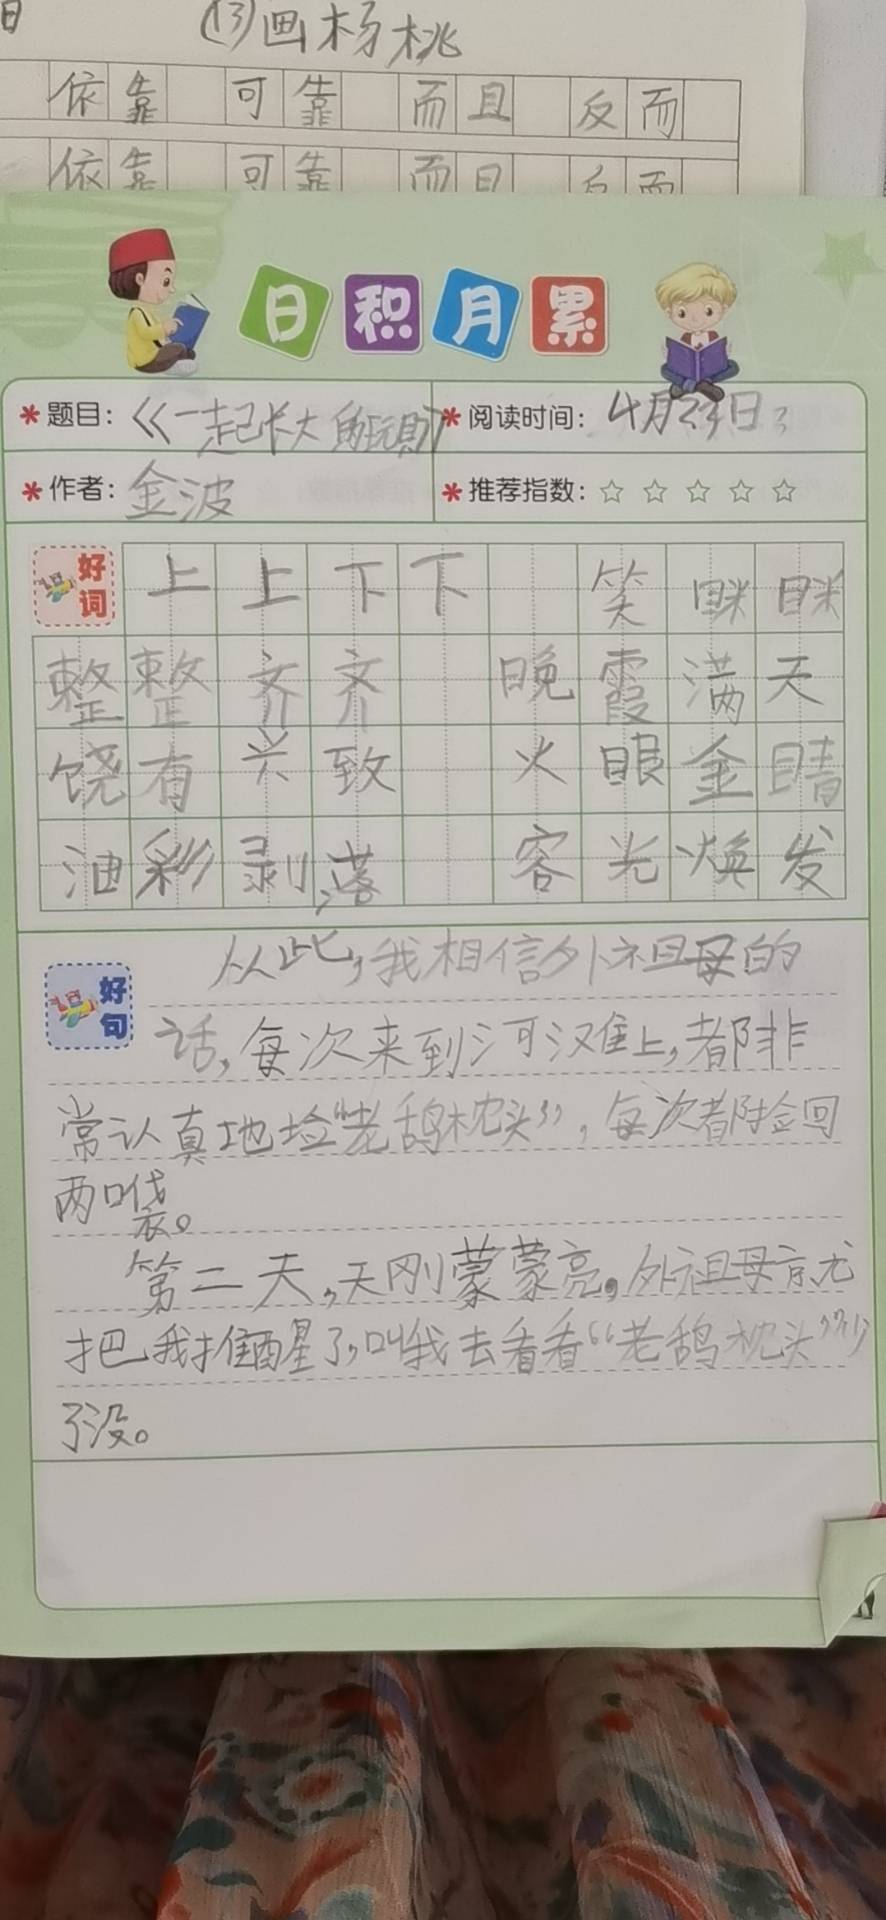 日
(13)画杨桃
依靠 可靠 而且 反而
依靠 可靠 而且 反而
日积月累
*题目：《一起长大的玩具》 *阅读时间：4月23日
*作者：金波 *推荐指数：☆ ☆ ☆ ☆ ☆
好词
上上下下 笑眯眯
整整齐齐 晚霞满天
饶有兴致 火眼金睛
油彩剥落 容光焕发
好句
从此，我相信外祖母的
话，每次来到河滩上，都非
常认真地捡“老鸹枕头”，每次都捡回
两口袋。
第二天，天刚蒙蒙亮，外祖母就
把我推醒了，叫我去看看“老鸹枕头”少
了没。